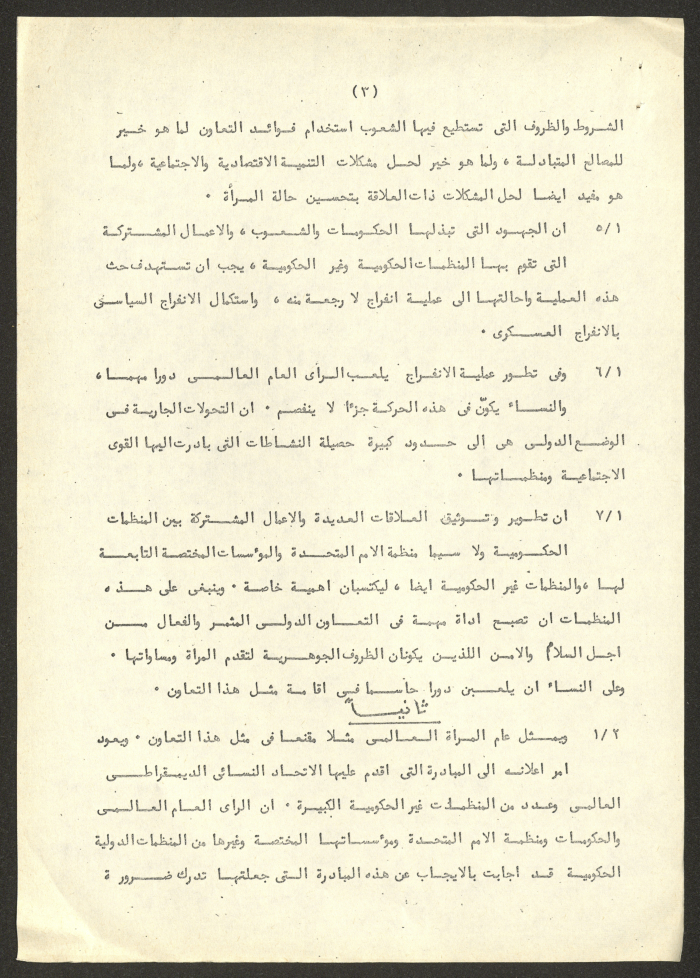 (٣)
الشروط والظروف التى تستطيع فيها الشعوب استخدام فوائد التعاون لما هو خير
للمصالح المتبادلة ، ولما هو خير لحل مشكلات التنمية الاقتصادية والاجتماعية ،ولما
هو مفيد ايضا لحل المشكلات ذات العلاقة بتحسين حالة المرأة ٠
٥/١ ان الجهود التى تبذلها الحكومات والشعوب ، والاعمال المشتركة
التى تقوم بها المنظمات الحكومية وغير الحكومية ، يجب ان تستهدف حث
هذه العملية واحالتها الى عملية انفراج لا رجعة منه ، واستكمال الانفراج السياسى
بالانفراج العسكرى ٠
٦/١ وفى تطور عملية الانفراج يلعب الرأى العام العالمى دورا مهما ،
والنساء يكوّن فى هذه الحركة جزءا لا ينفصم ٠ ان التحولات الجارية فى
الوضع الدولى هى الى حدود كبيرة حصيلة النشاطات التى بادرت اليها القوى
الاجتماعية ومنظماتها ٠
٧/١ ان تطوير وتوثيق العلاقات العديدة والاعمال المشتركة بين المنظمات
الحكومية ولا سيما منظمة الامم المتحدة والمؤسسات المختصة التابعة
لها ،والمنظمات غير الحكومية ايضا ، ليكتسبان اهمية خاصة ٠ وينبغى على هذه
المنظمات ان تصبح اداة مهمة فى التعاون الدولى المثمر والفعال من
اجل السلام والامن اللذين يكونان الظروف الجوهرية لتقدم المراة ومساواتها ٠
وعلى النساء ان يلعبن دورا حاسما فى اقامة مثل هذا التعاون ٠
ثانياً
١/٢ ويمثل عام المراة العالمى مثلا مقنعا فى مثل هذا التعاون ٠ ويعود
امر اعلانه الى المبادرة التى اقدم عليها الاتحاد النسائى الديمقراطى
العالمى وعدد من المنظمات غير الحكومية الكبيرة ٠ ان الراى العام العالمى
والحكومات ومنظمة الامم المتحدة ومؤسساتها المختصة وغيرها من المنظمات الدولية
الحكومية قد اجابت بالايجاب عن هذه المبادرة التى جعلتها تدرك ضرورة